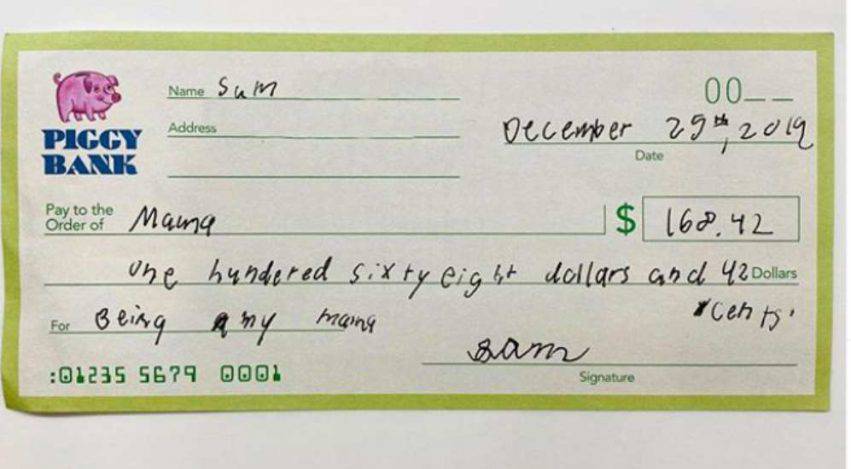 Name Sam
00__ __
Address
December 29th, 2019
Date
PIGGY
BANK
Pay to the
Order of Mama $ 168.42
one hundered sixty eight dollars and 42 Dollars
*cents.
For Being my mama
sam
Signature
:01235 5679 0001